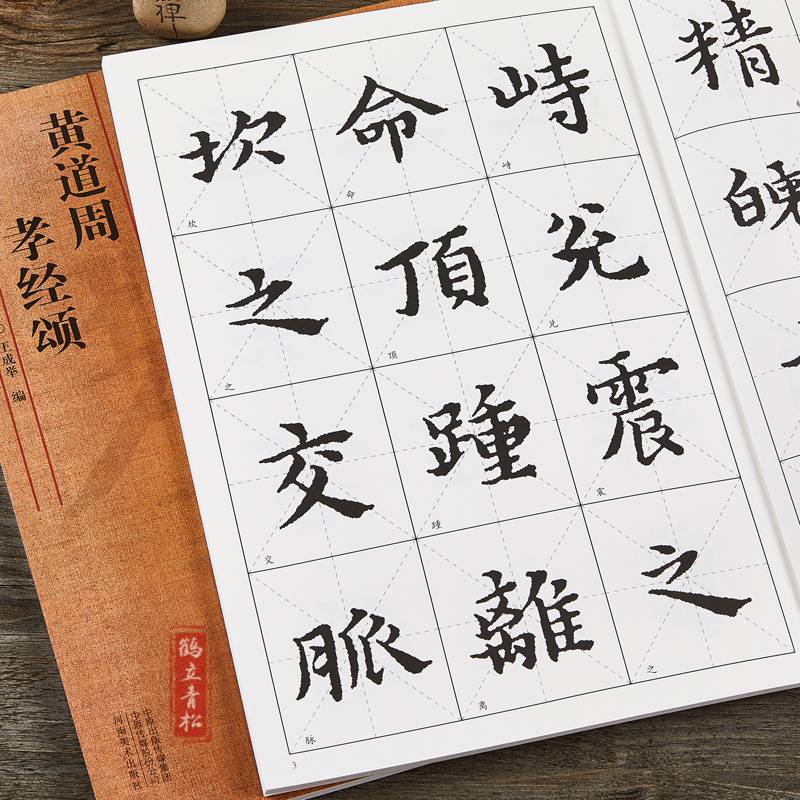 禅
黄道周
孝经颂
王成举 编
鹤立青松
中原出版传媒集团
中原传媒股份公司
河南美术出版社
精
峙兑震之
命頂踵離
坎之交脈
峙
兑
震
之
命
顶
踵
离
坎
之
交
脉
3